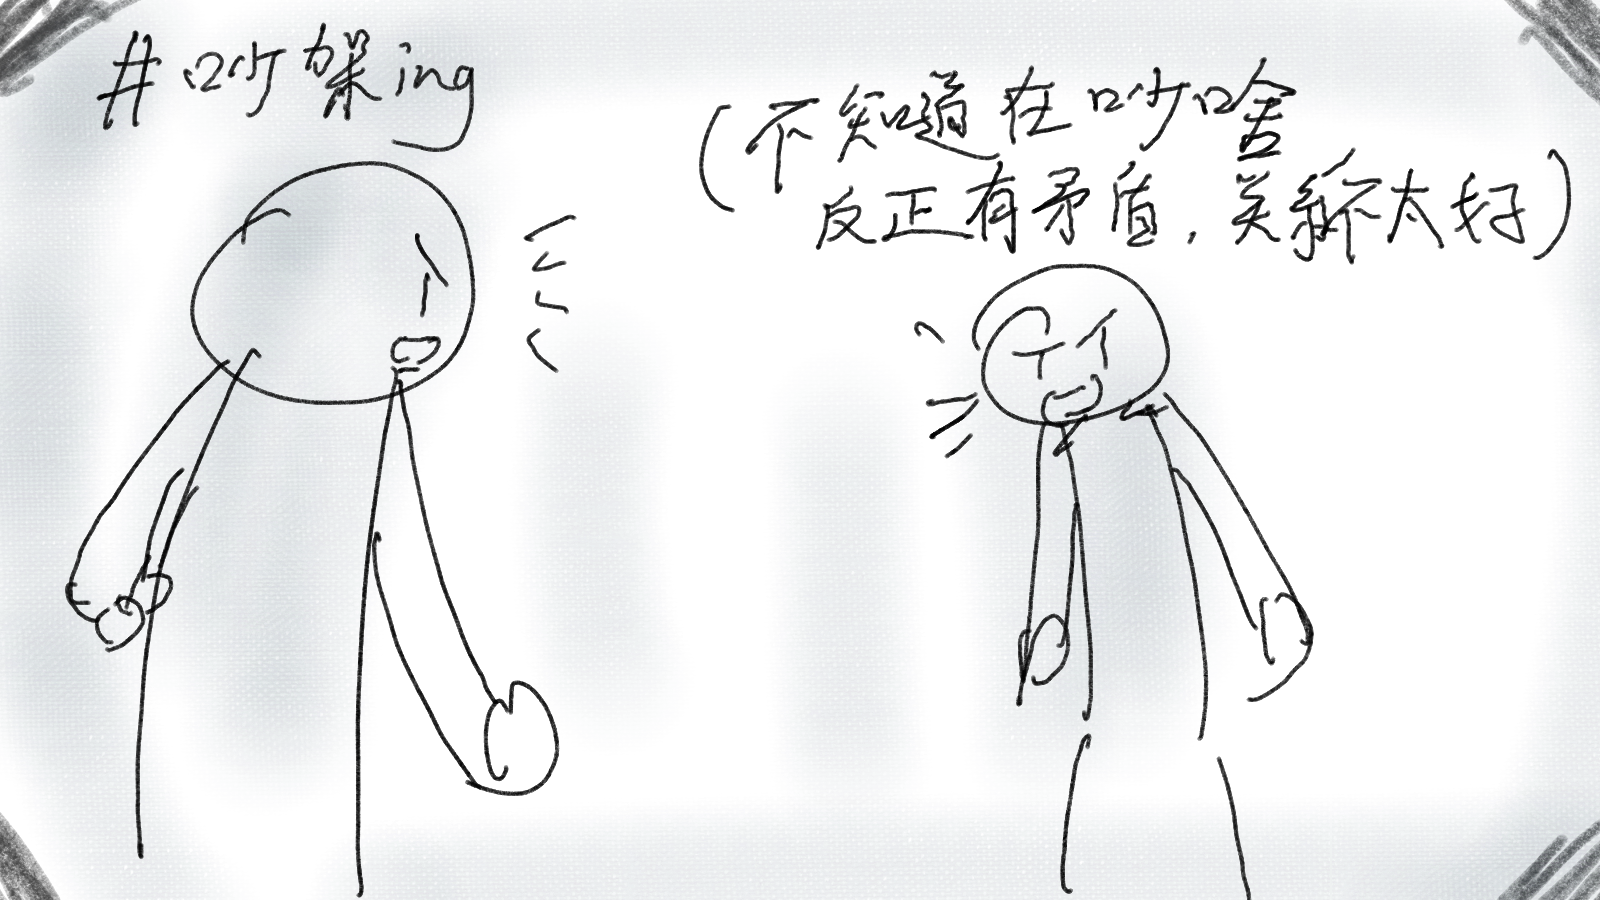 #吵架ing
(不知道在吵啥
反正有矛盾,关系不太好)